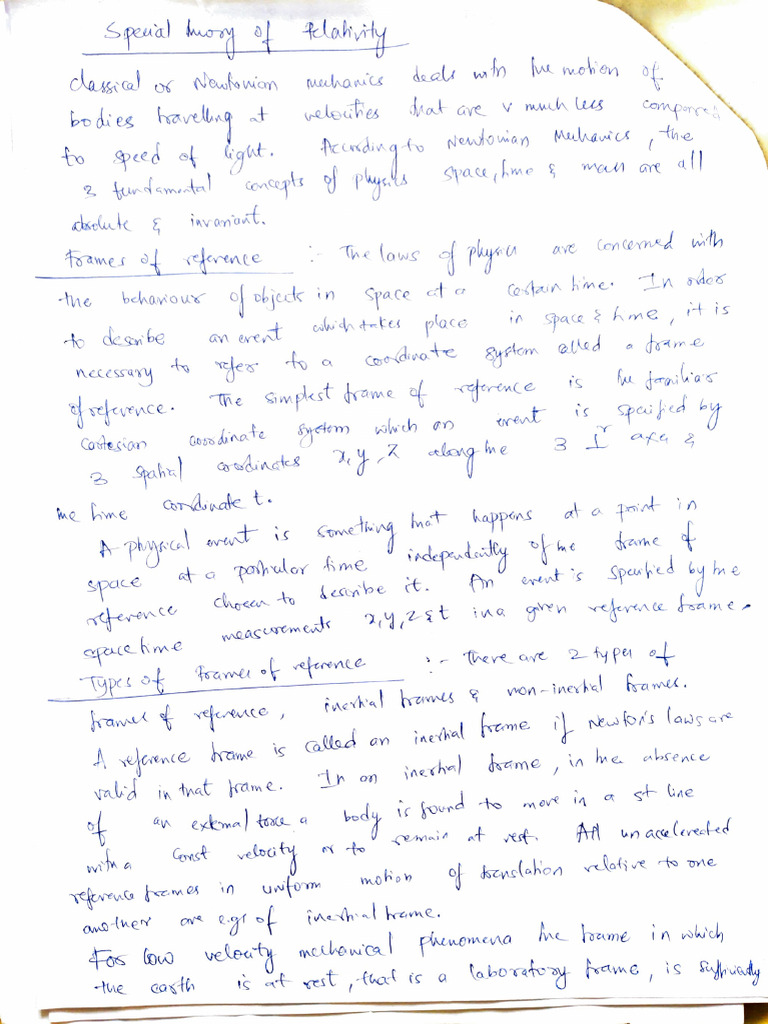 Special theory of relativity
Classical or Newtonian mechanics deals with the motion of
bodies travelling at velocities that are v much less compared
to speed of light. According to Newtonian Mechanics, the
3 fundamental concepts of physics space, time & mass are all
absolute & invariant.
Frames of reference :- The laws of physics are concerned with
the behaviour of objects in space at a certain time. In order
to describe an event which takes place in space & time, it is
necessary to refer to a coordinate system called a frame
of reference. The simplest frame of reference is the familiar
cartesian coordinate system which an event is specified by
3 spatial coordinates x, y, z along the 3 ⊥r axes &
the time coordinate t.
A physical event is something that happens at a point in
space at a particular time independently of the frame of
reference chosen to describe it. An event is specified by the
space time measurements x, y, z & t in a given reference frame.
Types of frames of reference :- There are 2 types of
frames of reference, inertial frames & non-inertial frames.
A reference frame is called an inertial frame if Newton's laws are
valid in that frame. In an inertial frame, in the absence
of an external force a body is found to move in a st line
with a const velocity or to remain at rest. All unaccelerated
reference frames in uniform motion of translation relative to one
another are e.gs of inertial frame.
For low velocity mechanical phenomena the frame in which
the earth is at rest, that is a laboratory frame, is sufficiently